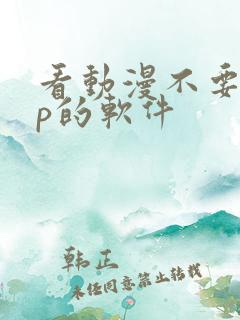 看動漫不要
p的軟件
韩正
未经同意禁止转载